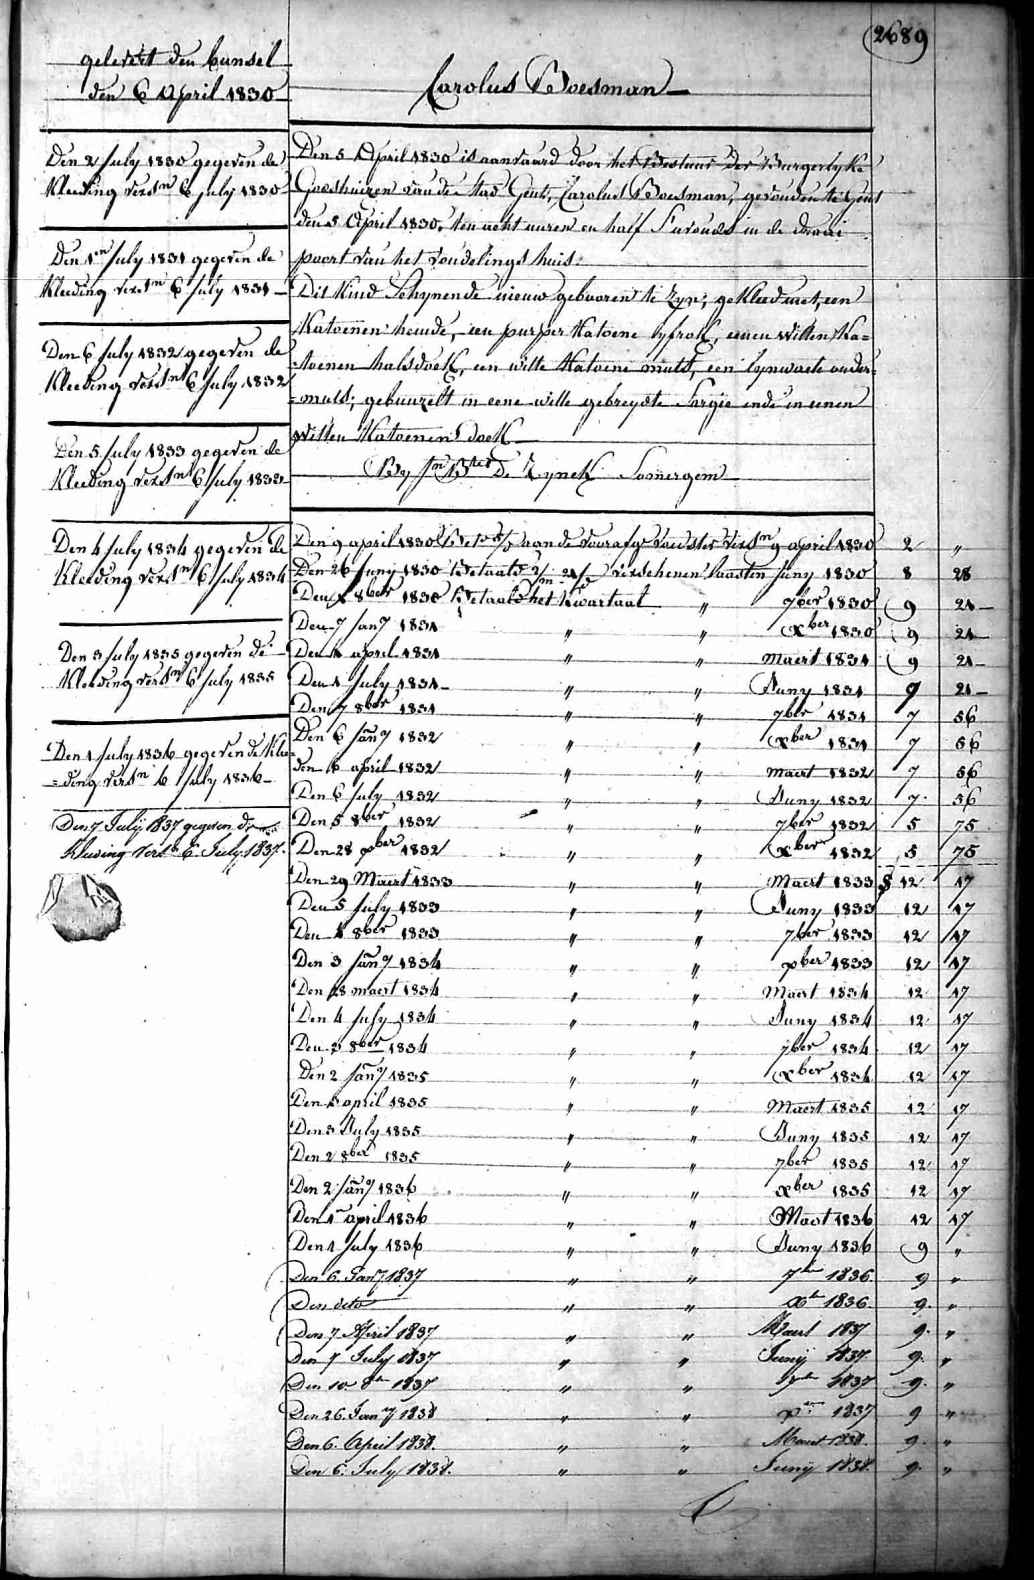 2689
gelevert den bunsel
den 6 April 1830
Carolus Boesman
Den 2 July 1830 gegeven de
Kleeding versn 6 july 1830
Den 1en July 1831 gegeven de
Kleeding versn 6 july 1831
Den 6 July 1832 gegeven de
Kleeding versn 6 july 1832
Den 5 July 1833 gegeven de
Kleeding versn 6 july 1833
Den 4 July 1834 gegeven de
Kleeding versn 6 july 1834
Den 3 July 1835 gegeven de
Kleeding versn 6 july 1835
Den 1 july 1836 gegeven de Klee=
=ding versn 6 july 1836
Den 7 July 1837 gegeven de
Kleeding vers. 6 July 1837.
Den 5 April 1830 is aanvaard door het Bestuur der Burgerlyke
Godshuizen van de Stad Gent, Carolus Boesman, gevonden te Gent
den 5 April 1830, ten acht uuren en half s'avonds in de draai
poort van het vondelings huis.
Dit Kind Schynende nieuw gebooren te zyn; gekleed met een
Katoenen hemde, een purper Katoene lyfrok, eenen witten Ka=
=toenen halsdoek, een witte Katoene muts, een lynwaete onder=
=muts; gebunzelt in eene witte gebreyde Sargie ende in eenen
witten Katoenen doek
By De Zynck Somergem
Den 9 april 1830 aan de voorafg. versn 9 april 1830 2 "
Den 26 Juny 1830 betaald verschenen laasten Juny 1830 8 28
Den 8ber 1830 betaald het Kwartaal " 7ber 1830 9 21
Den 7 Jany 1831 " " xber 1830 9 21
Den 1 april 1831 " " maert 1831 9 21
Den 1 July 1831 " " Juny 1831 9 21
Den 7 8ber 1831 " " 7ber 1831 7 56
Den 6 Jany 1832 " " xber 1831 7 56
den 6 april 1832 " " maert 1832 7 56
Den 6 july 1832 " " Juny 1832 7 56
Den 5 8ber 1832 " " 7ber 1832 5 75
Den 28 xber 1832 " " xber 1832 5 75
Den 29 Maert 1833 " " Maert 1833 12 17
Den 5 july 1833 " " Juny 1833 12 17
Den 4 8ber 1833 " " 7ber 1833 12 17
Den 3 Jany 1834 " " xber 1833 12 17
Den 28 maert 1834 " " Maert 1834 12 17
Den 4 July 1834 " " Juny 1834 12 17
Den 3 8ber 1834 " " 7ber 1834 12 17
Den 2 Jany 1835 " " xber 1834 12 17
Den april 1835 " " Maert 1835 12 17
Den 3 July 1835 " " Juny 1835 12 17
Den 2 8ber 1835 " " 7ber 1835 12 17
Den 2 Jany 1836 " " xber 1835 12 17
Den 1 april 1836 " " Maert 1836 12 17
Den 1 july 1836 " " Juny 1836 9 "
Den 6. Jany 1837 " " 7ber 1836 9 "
Den dito " " xber 1836. 9. "
Den 7 April 1837 " " Maert 1837 9. "
Den 7 July 1837 " " Junij 1837 9. "
Den 10 8ber 1837 " " 7ber 1837 9. "
Den 26. Jany 1838 " " xber 1837 9 "
Den 6. April 1838. " " Maert 1838. 9. "
Den 6. July 1838. " " Junij 1838. 9. "